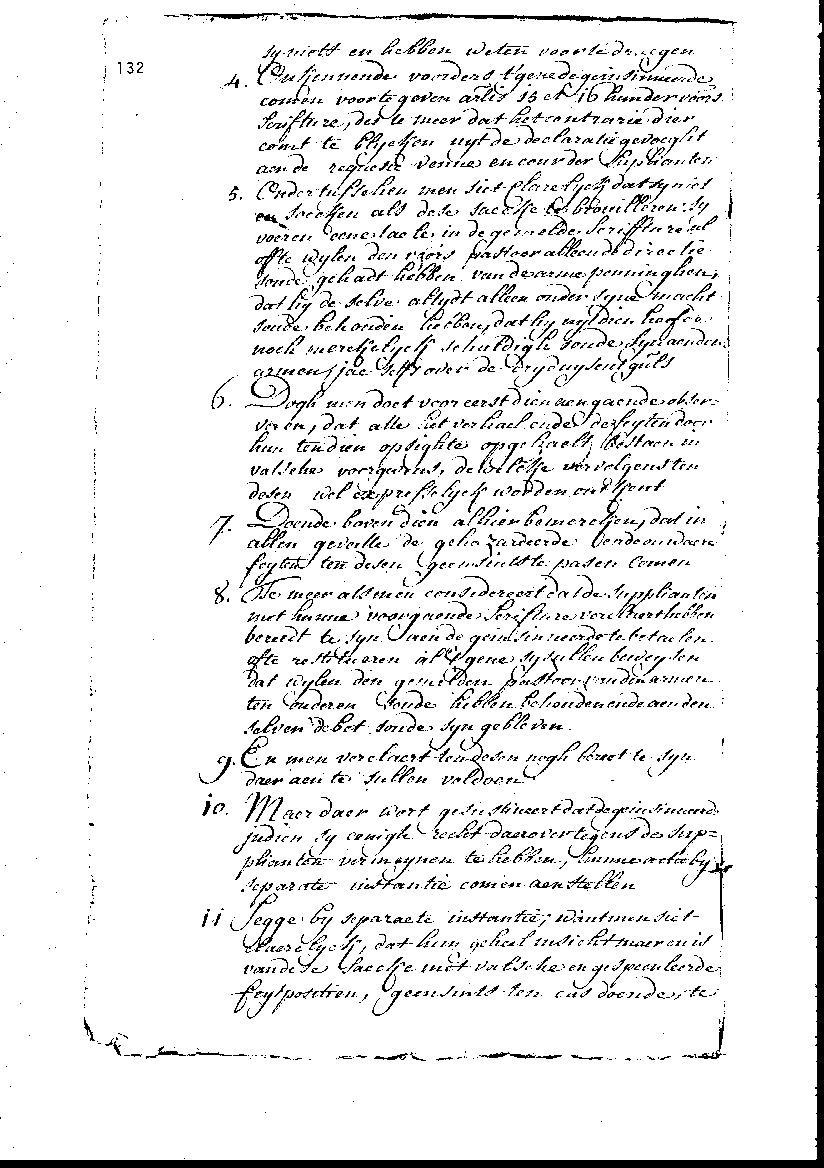 132
sy niets en hebben weten voorte draegen
4. Ontkennende voorders t'gene de geinsinueerde
comen voorte geven artis 15 et 16 hunder voors
scrifture, des te meer dat het contrarie dier
comt te blycken uyt de declaratie gevoeght
aen de requeste venue en cour der supplianten
5. Ondertusschen men siet clarelyck dat sy niet
en soecken als dese saecke te brouilleren: sy
voeren eene tacle in de gemelde scrifture al
ofte wylen den voors pastoor alleen de directie
soude gehadt hebben van de arme penninghen,
dat hy de selve altydt alleen onder syne macht
soude behouden hebben, dat hy uyt dien hoofde
noch merckelyck schuldigh soude syn aenden
armen, jae selfs over de dry duysent guls
6. Dogh men doet voor eerst dien aengaende obser-
veren, dat alle het verhael ende de feyten door
hun ten dien opsighte opgehaelt, bestaen in
valsche voorgevens, de welcke vervolgens ten
desen wel expresselyck worden ontkent
7. Doende boven dien alhier bemercken, dat in
allen gevalle de gehazardeerde
feyten ten desen geensints te pasen comen
8. Te meer als men considereert dat de supplianten
met hunne voorgaende scrifture verclaert hebben
bereedt te syn aen de geinsinueerde te betaelen
ofte restitueren al t'gene sy sullen bewysen
dat wylen den gemelden pastoor van den armen
ten onderen soude hebben behouden ende aen den
selven debet soude syn gebleven
9. En men verclaert ten desen nogh bereet te syn
daer aen te sullen voldoen
10. Maer daer wort gesustineert dat de geinsinueerde
indien sy eenigh recht daer over tegens de sup-
plianten vermeynen te hebben, hunne actie by
separate instantie comen aenstellen
11 Segge by separaete instantie, want men siet
claerelyck, dat hun geheel insicht maer en is
van dese saecke met valsche en gespeculeerde
feytposition, geensints ten cas doende, te